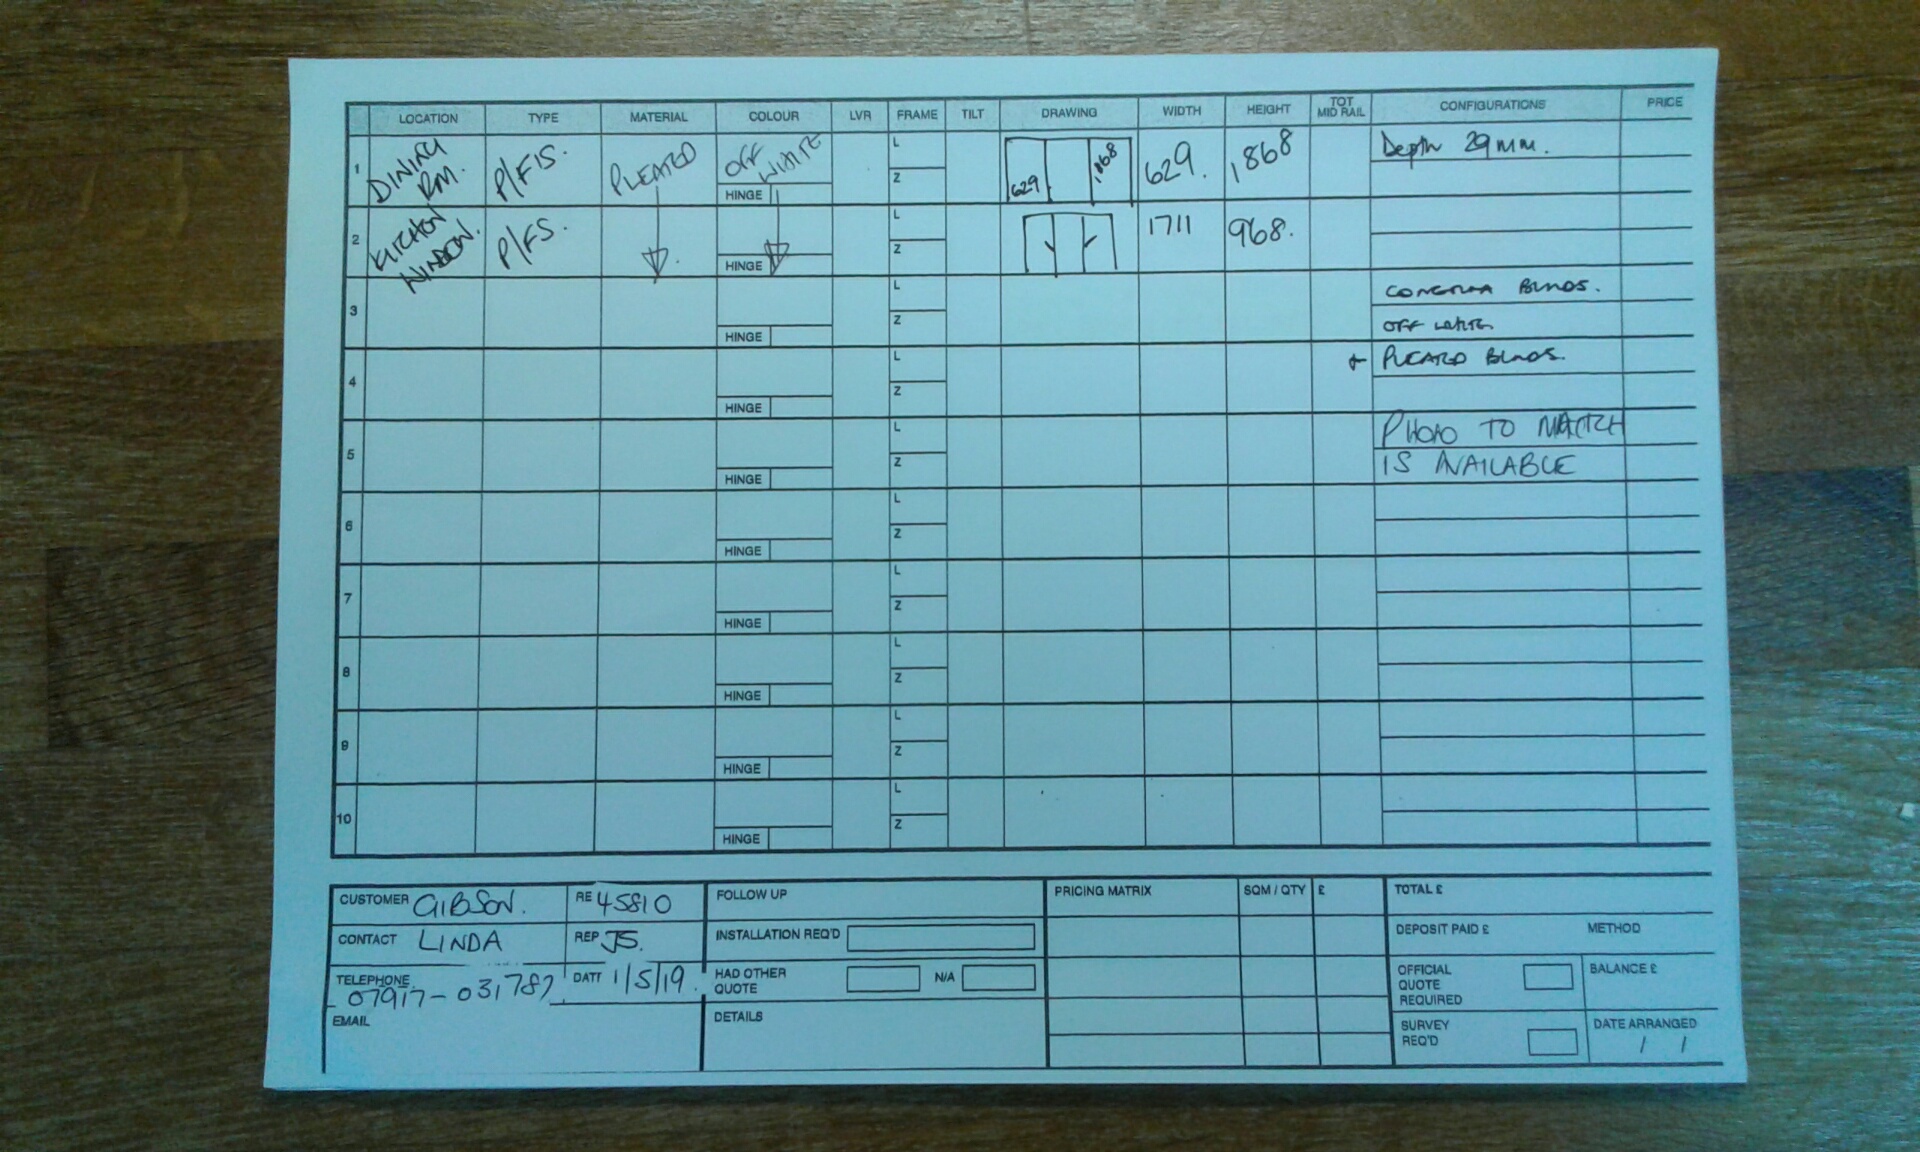 LOCATION TYPE MATERIAL COLOUR LVR FRAME TILT DRAWING WIDTH HEIGHT TOT MID RAIL CONFIGURATIONS PRICE
1 DINING RM. P/FIS. PLEATED OFF WHITE HINGE L Z 629 1868 629. 1868 Depth 29mm.
2 KITCHON WINDOW. P/FS. HINGE L Z 1711 968.
3 HINGE L Z BLINDS.
OFF WHITE
4 HINGE L Z + PLEATED BLINDS.
5 HINGE L Z PHOTO TO MATCH
IS AVAILABLE
6 HINGE L Z
7 HINGE L Z
8 HINGE L Z
9 HINGE L Z
10 HINGE L Z
CUSTOMER GIBSON. RE 45810
CONTACT LINDA REP JS.
TELEPHONE 07917-031787 DATE 1/5/19.
EMAIL
FOLLOW UP
INSTALLATION REQ'D
HAD OTHER QUOTE N/A
DETAILS
PRICING MATRIX SQM / QTY £
TOTAL £
DEPOSIT PAID £ METHOD
OFFICIAL QUOTE REQUIRED BALANCE £
SURVEY REQ'D DATE ARRANGED
/ /